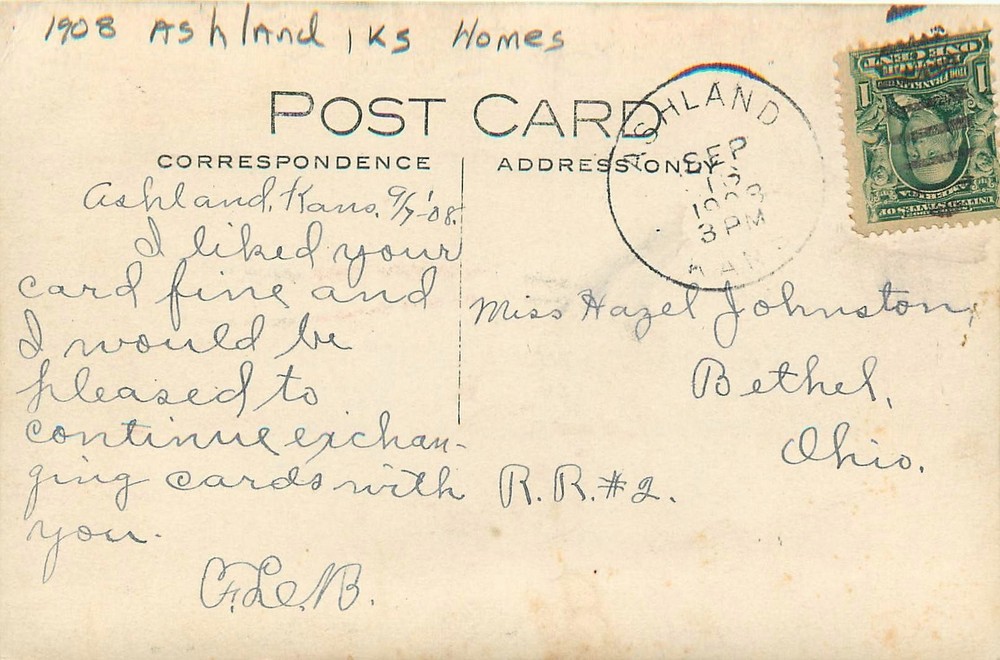 1908 Ashland, KS Homes
POST CARD
CORRESPONDENCE
ADDRESS ONLY
ASHLAND
SEP
1908
3 PM
KANS
ONE CENT
1 1
FRANKLIN
UNITED STATES OF
AMERICA
Ashland, Kans. 9/7-'08.
I liked your
card fine and
I would be
pleased to
continue exchan-
ging cards with
you.
Miss Hazel Johnston,
Bethel,
Ohio.
R.R.#2.